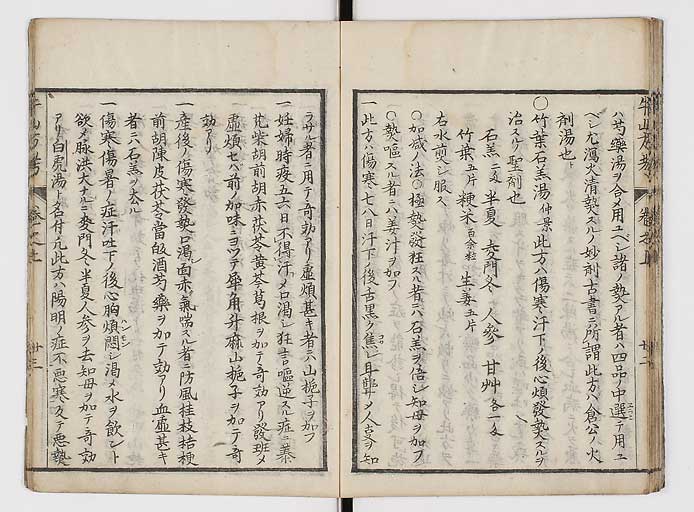 ハ芍藥湯ヲ合メ用ユヘシ諸ノ熱アル者ハ四品ノ中選テ用ユ
ヘシ凢瀉火清熱スルノ妙劑古書ニ所謂此方ハ倉公ノ火
劑湯也ト
〇竹葉石羔湯 仲景 此方ハ傷寒汗下ノ後心煩發熱スルヲ
治スルノ聖劑也
石羔 二戔 半夏 麥門冬 人參 甘艸 各一戔
竹葉 五片 粳米 百余粒 生姜 五片
右水煎シ服ス
〇加减ノ法〇極熱發狂スル者ニハ石羔ヲ倍シ知母ヲ加フ
〇熱嘔スル者ニハ姜汁ヲ加フ
一此方ハ傷寒七八日汗下ノ後舌黒ク焦シ耳聾ノ人支ヲ知
ラサル者ニ用テ奇効アリ虚煩甚キ者ニハ山梔子ヲ加フ
一妊婦時疫五六日不得汗メ口渇シ狂言嘔逆スル症ニ蓁
艽柴胡前胡赤茯苓黄芩葛根ヲ加テ奇効アリ發班メ
虚煩セバ前ノ加味ニヨツテ犀角升麻山梔子ヲ加テ奇
効アリ
一産後ノ傷寒發熱口渇面赤氣喘スル者ニ防風桂枝桔梗
前胡陳皮茯苓當皈酒芍藥ヲ加テ効アリ血虚甚キ
者ニハ石羔ヲ去ル
一傷寒傷暑ノ症汗吐下ノ後心胸煩悶シ渇メ水ヲ飲ント
欲メ脉洪大ナルニ麥門冬半夏人參ヲ去知母ヲ加テ奇効
アリ白虎湯ト名付凢此方ハ陽明ノ症不悪寒反テ悪熱